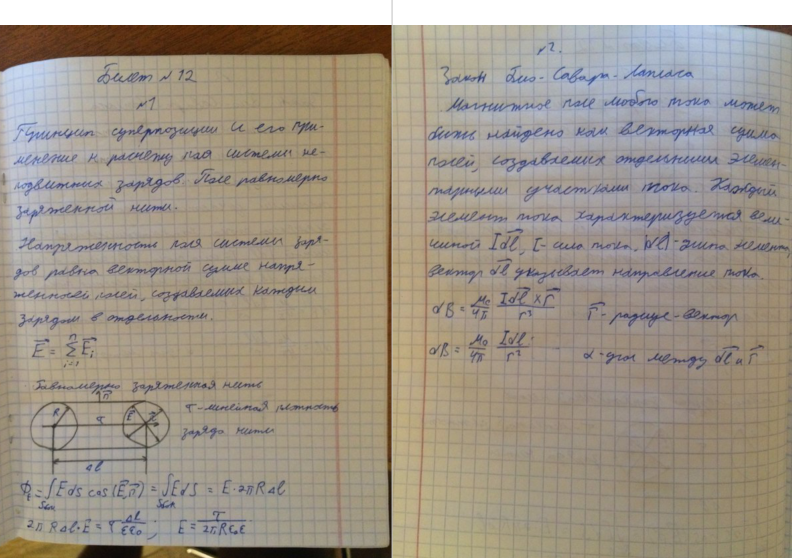 Билет №12
№1
Принцип суперпозиции и его при-
менение к расчету поля системы не-
подвижных зарядов. Поле равномерно
заряженной нити.
Напряженность поля системы заря-
дов равна векторной сумме напря-
женностей полей, создаваемых каждым
зарядом в отдельности.
E⃗ = Σ E⃗i
i=1
n
Равномерно заряженная нить
n⃗
R
τ
E⃗
Δl
τ - линейная плотность
заряда нити
Φ_E = ∫ E ds cos(E⃗,n⃗) = ∫ E ds = E·2πRΔl
Sбок Sбок
2πRΔl·E = τ Δl/εε₀ ; E = τ/2πRε₀ε
№2.
Закон Био-Савара-Лапласа
Магнитное поле любого тока может
быть найдено как векторная сумма
полей, создаваемых отдельными элемен-
тарными участками тока. Каждый
элемент тока характеризуется вели-
чиной Idl⃗, I - сила тока, |dl⃗| - длина элемента,
вектор dl⃗ указывает направление тока.
dB = μ₀/4π Idl⃗ × r⃗/r³ r⃗ - радиус-вектор
dB = μ₀/4π Idl/r² α - угол между dl⃗ и r⃗